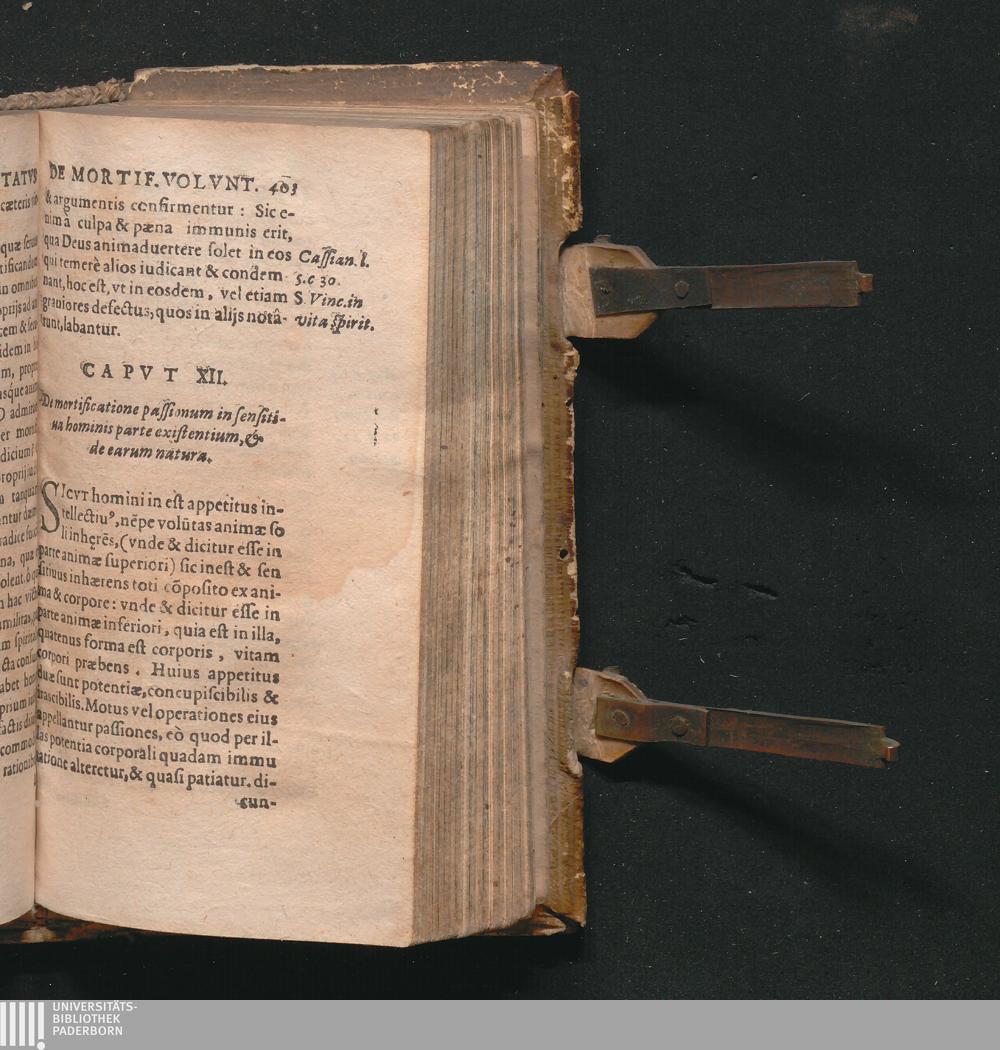 DE MORTIF. VOLVNT. 403
& argumentis confirmentur : Sic e-
nim à culpa & pæna immunis erit,
qua Deus animaduertere ſolet in eos
qui temerè alios iudicant & condem
nant, hoc eſt, vt in eosdem, vel etiam
grauiores defectus, quos in alijs notâ-
runt, labantur.
Caſſian. l.
5. c 30.
S. Vinc. in
vita ſpirit.
CAPVT XII.
De mortificatione paſſionum in ſenſiti-
ua hominis parte exiſtentium, &
de earum natura.
SICVT homini in eſt appetitus in-
tellectiuꝰ, nẽpe volũtas animæ ſo
li inhęrẽs, (vnde & dicitur eſſe in
parte animæ ſuperiori) ſic ineſt & ſen
ſitiuus inhærens toti cõpoſito ex ani-
ma & corpore : vnde & dicitur eſſe in
parte animæ inferiori, quia eſt in illa,
quatenus forma eſt corporis, vitam
corpori præbens. Huius appetitus
duæ ſunt potentiæ, concupiſcibilis &
iraſcibilis. Motus vel operationes eius
appellantur paſſiones, eò quod per il-
las potentia corporali quadam immu
tatione alteretur, & quaſi patiatur. di-
cun-
UNIVERSITÄTS-
BIBLIOTHEK
PADERBORN